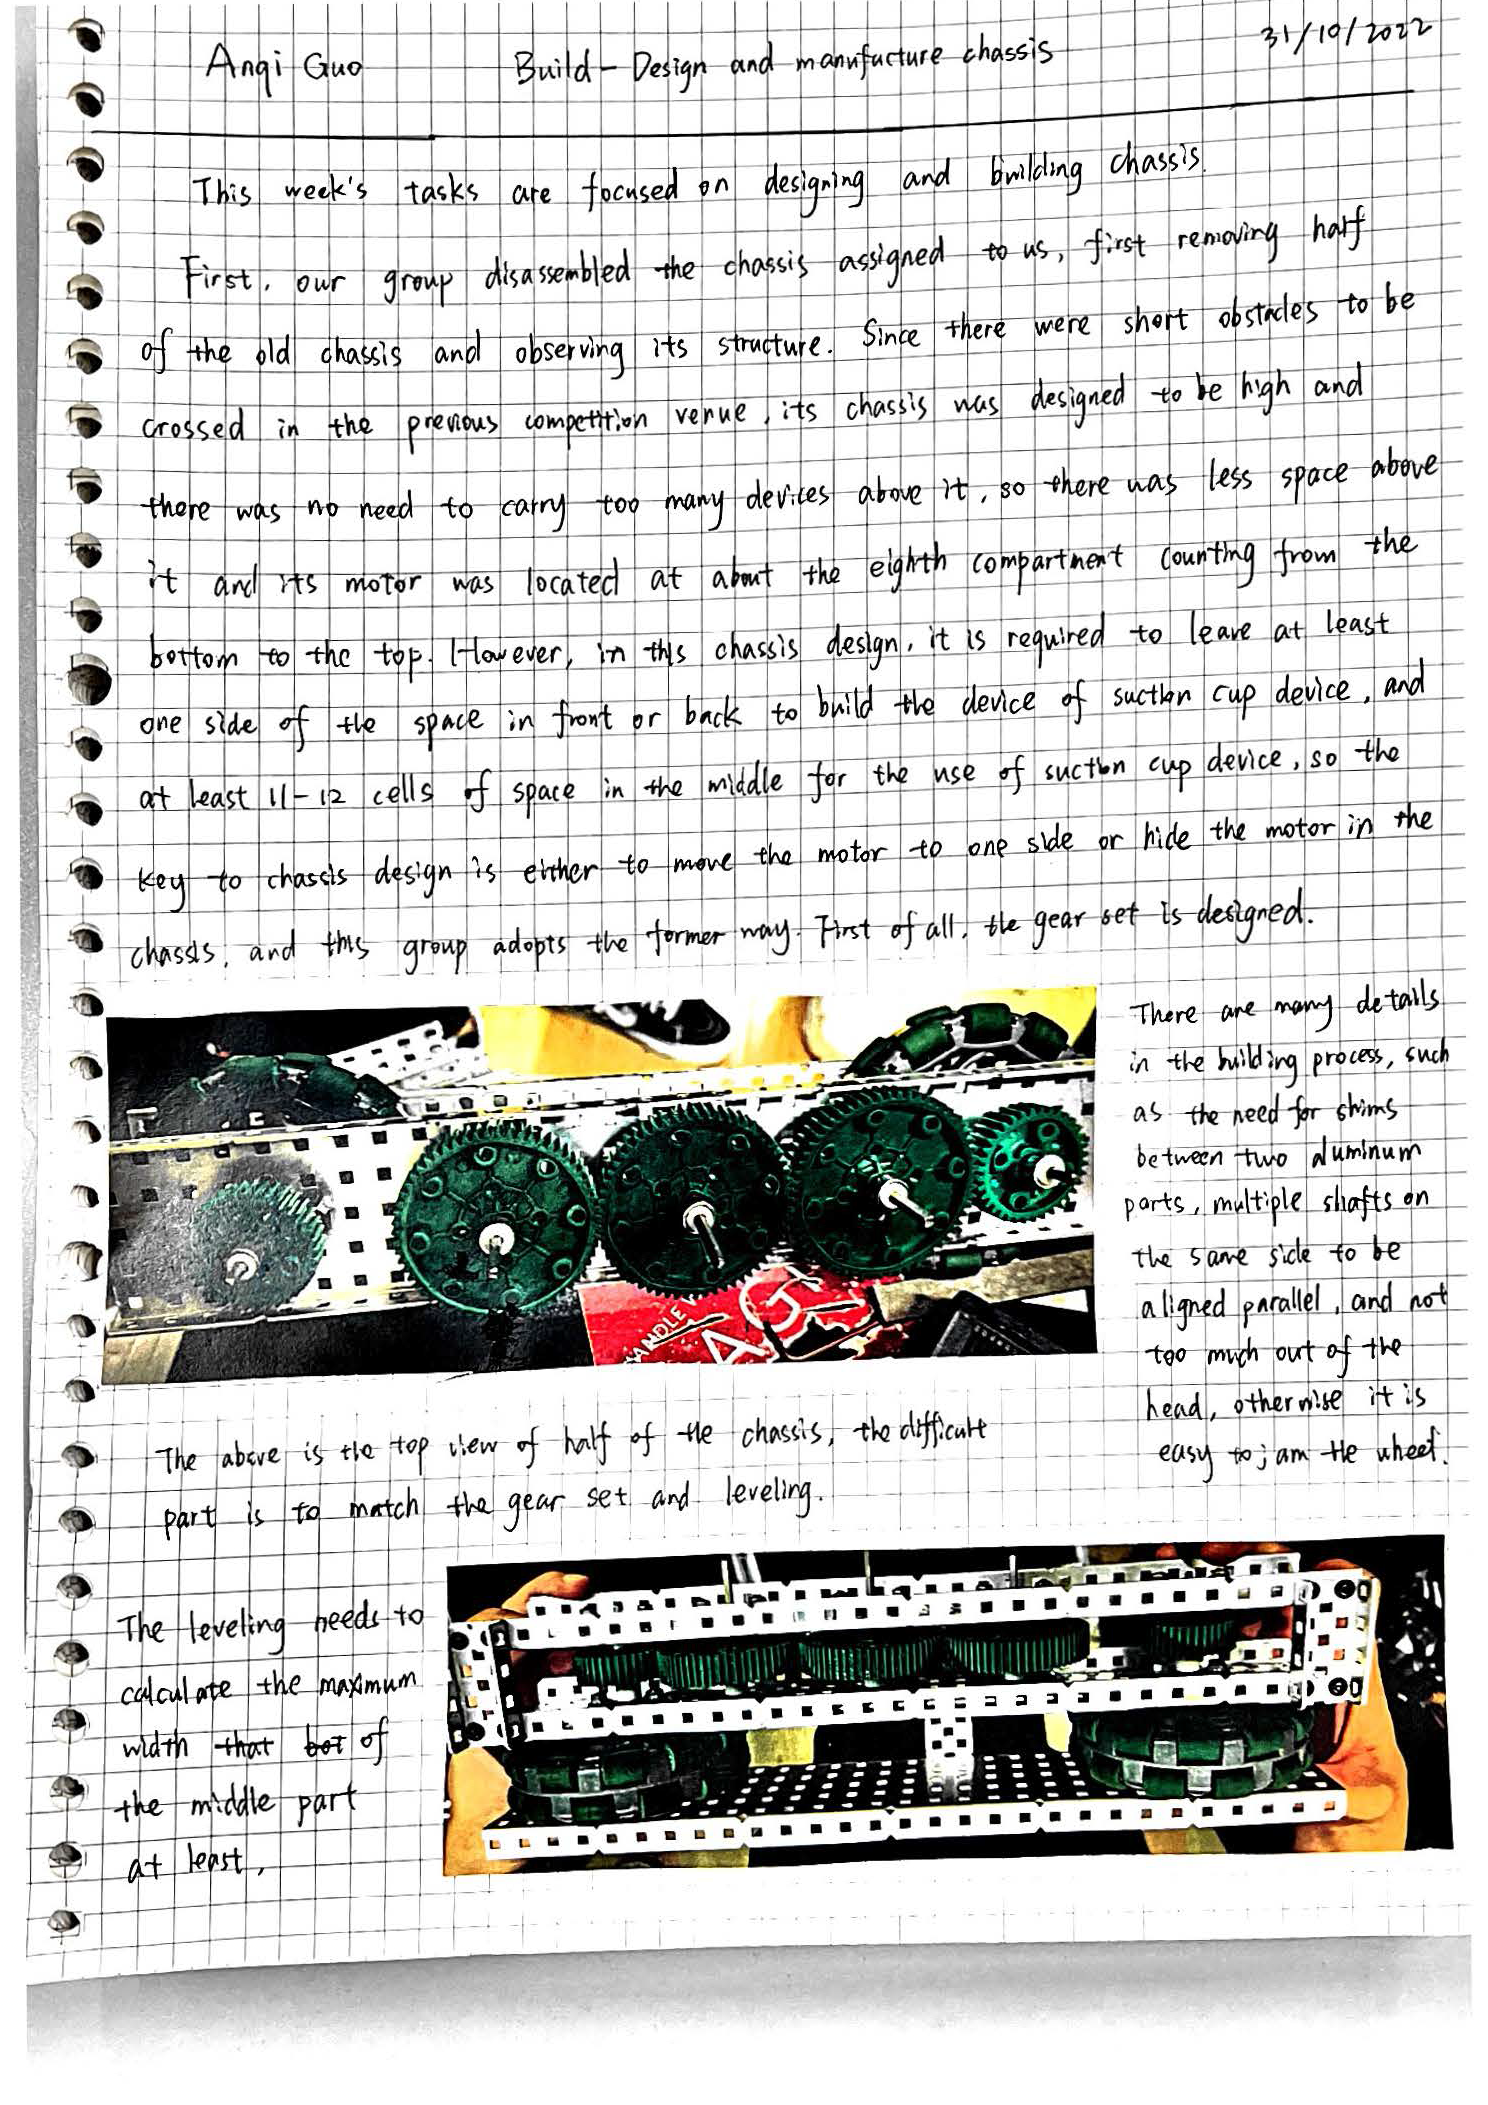 Anqi Guo Build - Design and manufacture chassis 31/10/2022
This week's tasks are focused on designing and building chassis.
First, our group disassembled the chassis assigned to us, first removing half
of the old chassis and observing its structure. Since there were short obstacles to be
crossed in the previous competition venue, its chassis was designed to be high and
there was no need to carry too many devices above it, so there was less space above
it and its motor was located at about the eighth compartment counting from the
bottom to the top. However, in this chassis design, it is required to leave at least
one side of the space in front or back to build the device of suction cup device, and
at least 11-12 cells of space in the middle for the use of suction cup device, so the
key to chassis design is either to move the motor to one side or hide the motor in the
chassis, and this group adopts the former way. First of all, the gear set is designed.
There are many details
in the building process, such
as the need for shims
between two aluminum
parts, multiple shafts on
the same side to be
aligned parallel, and not
too much out of the
head, otherwise it is
easy to jam the wheel.
ANDLE
AG
The above is the top view of half of the chassis, the difficult
part is to match the gear set and leveling.
The leveling needs to
calculate the maximum
width that bot of
the middle part
at least,